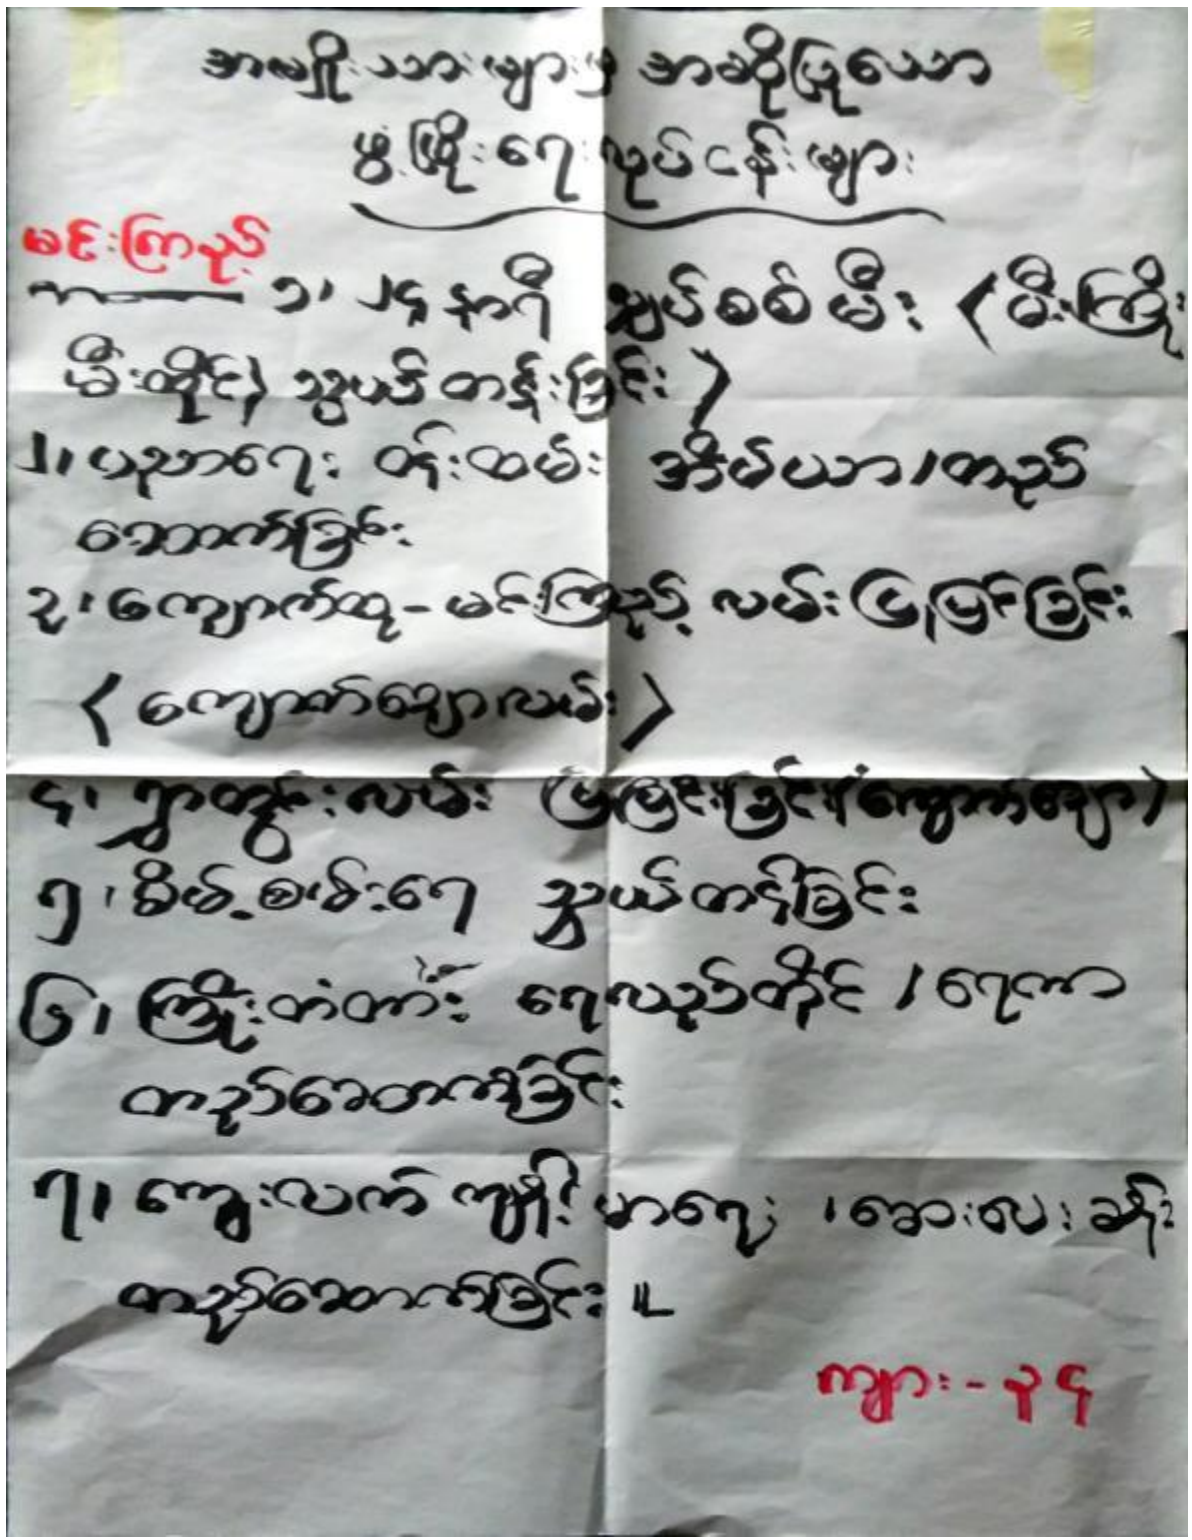 အမျိုးသားများမှ အဆိုပြုသော
ဖွံ့ဖြိုးရေးလုပ်ငန်းများ
မင်းကြာည့်
၁၊ ၂၄ နာရီ လျှပ်စစ်မီး (မီးကြိုး
မီးတိုင်) သွယ်တန်းခြင်း)
၂၊ ပညာရေး ဝန်ထမ်း အိမ်ယာ၊ တည်
ဆောက်ခြင်း
၃၊ ကျောက်ထု - မင်းကြာည့် လမ်း ပြုပြင်ခြင်း
(ကျောက်ချောလမ်း)
၄၊ ရွာတွင်းလမ်း ပြုပြင်ခြင်း (ကျောက်ချော)
၅၊ စိမ့်စမ်းရေ သွယ်တန်းခြင်း
၆၊ ကြိုးတံတား ရေလှည့်တိုင် ၊ ရေကာ
တည်ဆောက်ခြင်း
၇၊ ကျေးလက် ကျန်းမာရေး ၊ ဆေးပေးခန်း
တည်ဆောက်ခြင်း ။
ကျား - ၃၄